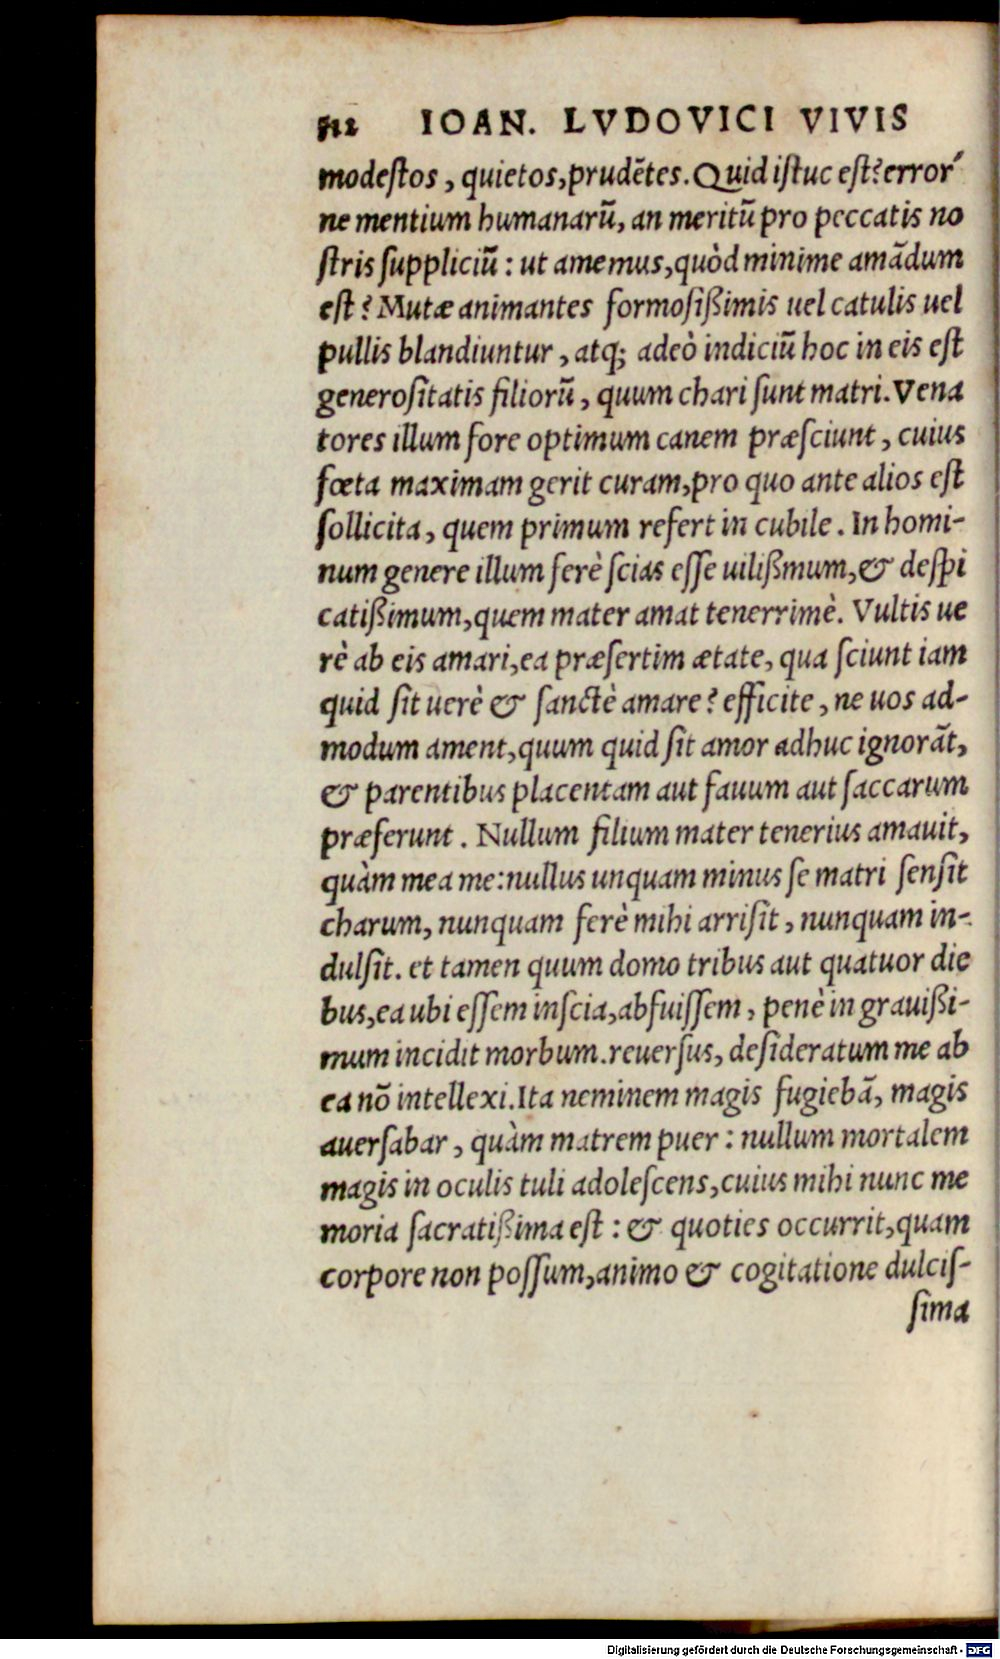 312 IOAN. LVDOVICI VIVIS
modeſtos, quietos, prudẽtes. Quid iſtuc eſt? error´
ne mentium humanarũ, an meritũ pro peccatis no
ſtris ſuppliciũ: ut amemus, quòd minime amãdum
eſt? Mutæ animantes formoſißimis uel catulis uel
pullis blandiuntur, atq; adeò indiciũ hoc in eis eſt
generoſitatis filiorũ, quum chari ſunt matri. Vena
tores illum fore optimum canem præſciunt, cuius
fœta maximam gerit curam, pro quo ante alios eſt
ſollicita, quem primum refert in cubile. In homi-
num genere illum ferè ſcias eſſe uilißmum, & deſpi
catißimum, quem mater amat tenerrimè. Vultis ue
rè ab eis amari, ea præſertim ætate, qua ſciunt iam
quid ſit uerè & ſanctè amare? efficite, ne uos ad-
modum ament, quum quid ſit amor adhuc ignorãt,
& parentibus placentam aut fauum aut ſaccarum
præferunt. Nullum filium mater tenerius amauit,
quàm mea me: nullus unquam minus ſe matri ſenſit
charum, nunquam ferè mihi arriſit, nunquam in-
dulſit. et tamen quum domo tribus aut quatuor die
bus, ea ubi eſſem inſcia, abfuiſſem, penè in grauißi-
mum incidit morbum. reuerſus, deſideratum me ab
ea nõ intellexi. Ita neminem magis fugiebã, magis
auerſabar, quàm matrem puer: nullum mortalem
magis in oculis tuli adoleſcens, cuius mihi nunc me
moria ſacratißima eſt: & quoties occurrit, quam
corpore non poſſum, animo & cogitatione dulciſ-
ſima
Digitalisierung gefördert durch die Deutsche Forschungsgemeinschaft - DFG